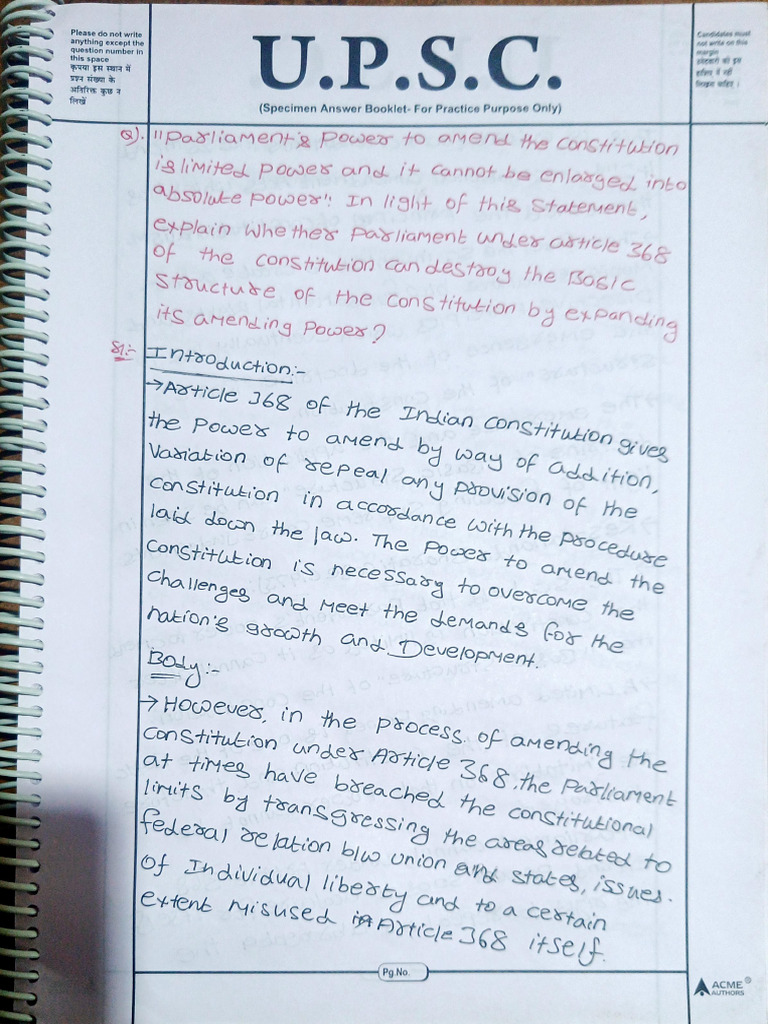 Please do not write
anything except the
question number in
this space
कृपया इस स्थान में
प्रश्न संख्या के
अतिरिक्त कुछ न
लिखें
U.P.S.C.
(Specimen Answer Booklet- For Practice Purpose Only)
Candidates must
not write on this
margin
उम्मीदवारों को इस
हाशिए में नहीं
लिखना चाहिए।
Q). "Parliament's Power to amend the constitution
is limited power and it cannot be enlarged into
absolute power". In light of this Statement,
explain whether Parliament under article 368
of the constitution can destroy the Basic
structure of the constitution by expanding
its amending Power?
Introduction:-
→Article 368 of the Indian constitution gives
the power to amend by way of addition,
Variation of repeal any provision of the
constitution in accordance with the procedure
laid down the law. The power to amend the
constitution is necessary to overcome the
challenges and Meet the demands for the
nation's growth and Development.
Body:-
→However, in the process of amending the
constitution under Article 368, the Parliament
at times have breached the constitutional
limits by transgressing the areas related to
federal relation b/w union and states, issues.
of Individual liberty and to a certain
extent misused in Article 368 itself.
Pg.No.
ACME
AUTHORS